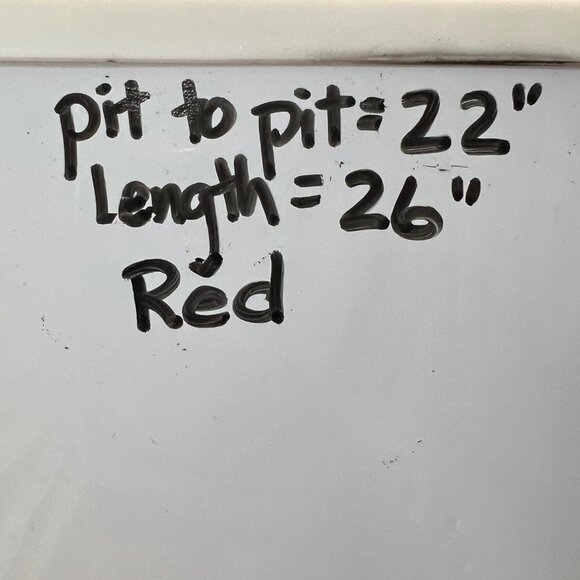 pit to pit = 22"
Length = 26"
Red